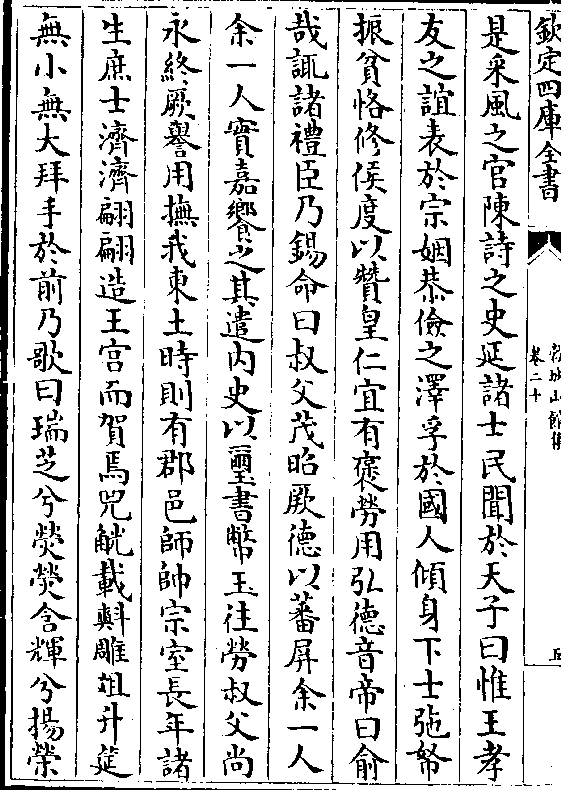 欽定四庫全書
穀城山館集
卷二十
五
是采風之官陳詩之史延諸士民聞於天子曰惟王孝
友之誼表於宗姻恭儉之澤孚於國人傾身下士弛帑
振貧恪修侯度以贊皇仁宜有褒勞用弘德音帝曰俞
哉諏諸禮臣乃錫命曰叔父茂昭厥德以蕃屏余一人
余一人實嘉饗之其遣内史以璽書幣玉往勞叔父尚
永終厥譽用撫我東土時則有郡邑師帥宗室長年諸
生庶士濟濟翩翩造王宫而賀焉兕觥載㪺雕俎升筵
無小無大拜手於前乃歌曰瑞芝兮熒熒含輝兮揚榮